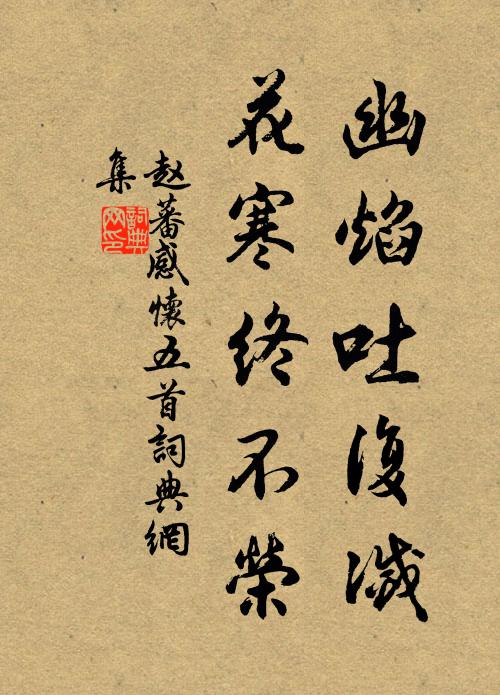 幽焰吐復滅
花寒終不榮
赵蕃感懷五首詞典網
集
詞典
网印